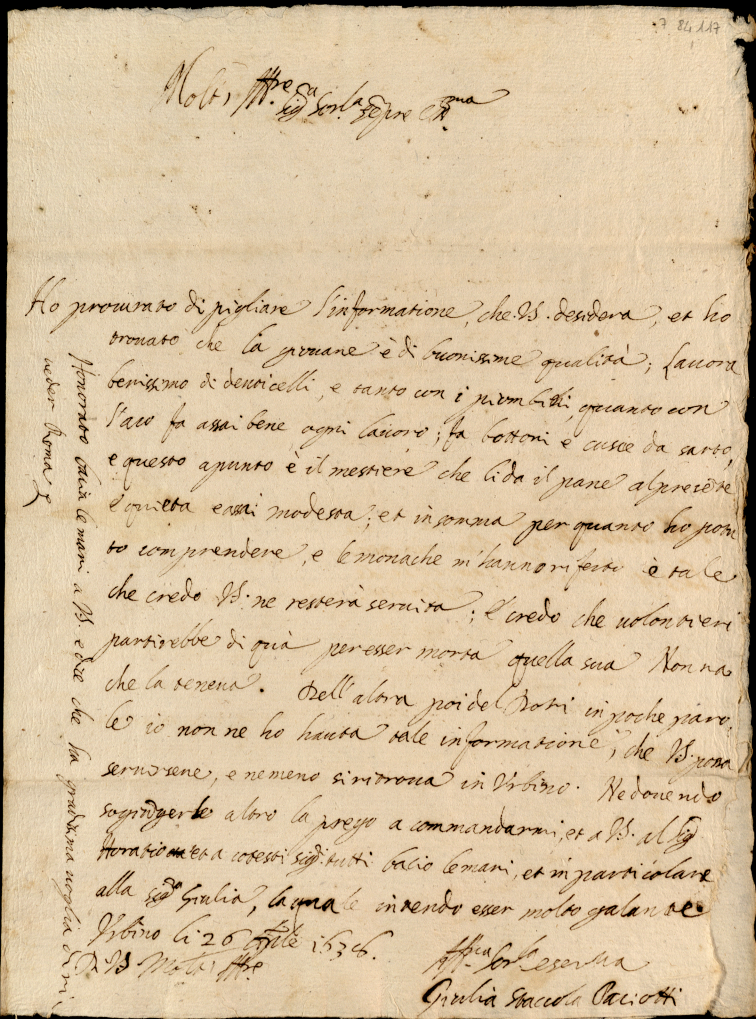 7 84 117
Molto Ill.re
Sig.ra Sor.la sempre
Ho procurato di pigliare l'informatione, che V.S. desidera, et ho
trovato che la giovane è di buonissime qualità; Lavora
benissimo di denticelli, e tanto con i piombini, quanto con
l'aco fa assai bene ogni lavoro; fa bottoni e cusce da sarto,
e questo apunto è il mestiere che li da il pane al presẽte
è quieta e assai modesta; et in somma per quanto ho potu
to comprendere, e le monache m'hanno riferto è tale
che credo V.S. ne resterà servita; e credo che volontieri
partirebbe di quà per esser morta quella sua Nonna
che la teneva. Dell'altra poi del in poche paro
le io non ne ho havuta tale informatione, che V.S. possa
servirsene, e nemeno si ritrova in Urbino. Ne dovendo
sogiõgerle altro la prego a commandarmi, et a V.S. al Sig.
Horatio et a cotesti Sig.ri tutti bacio le mani, et in particolare
alla Sig.ra Giulia, la quale intendo esser molto galante
Urbino li 26 Aprile 1636.
Di V.S. Molto Ill.re
Aff.ma Sor.la e serva
Giulia Staccola Paciotti
Honorato bacia le mani a V.S. e dice che ha grandissima voglia di ri
veder Roma